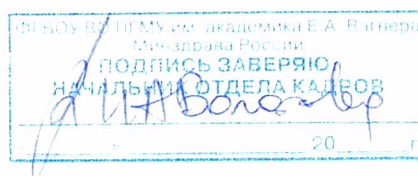 ФГБОУ ВО ПГМУ им. академика Е.А. Вагнера
Минздрава России
ПОДПИСЬ ЗАВЕРЯЮ
НАЧАЛЬНИК ОТДЕЛА КАДРОВ
20 г.